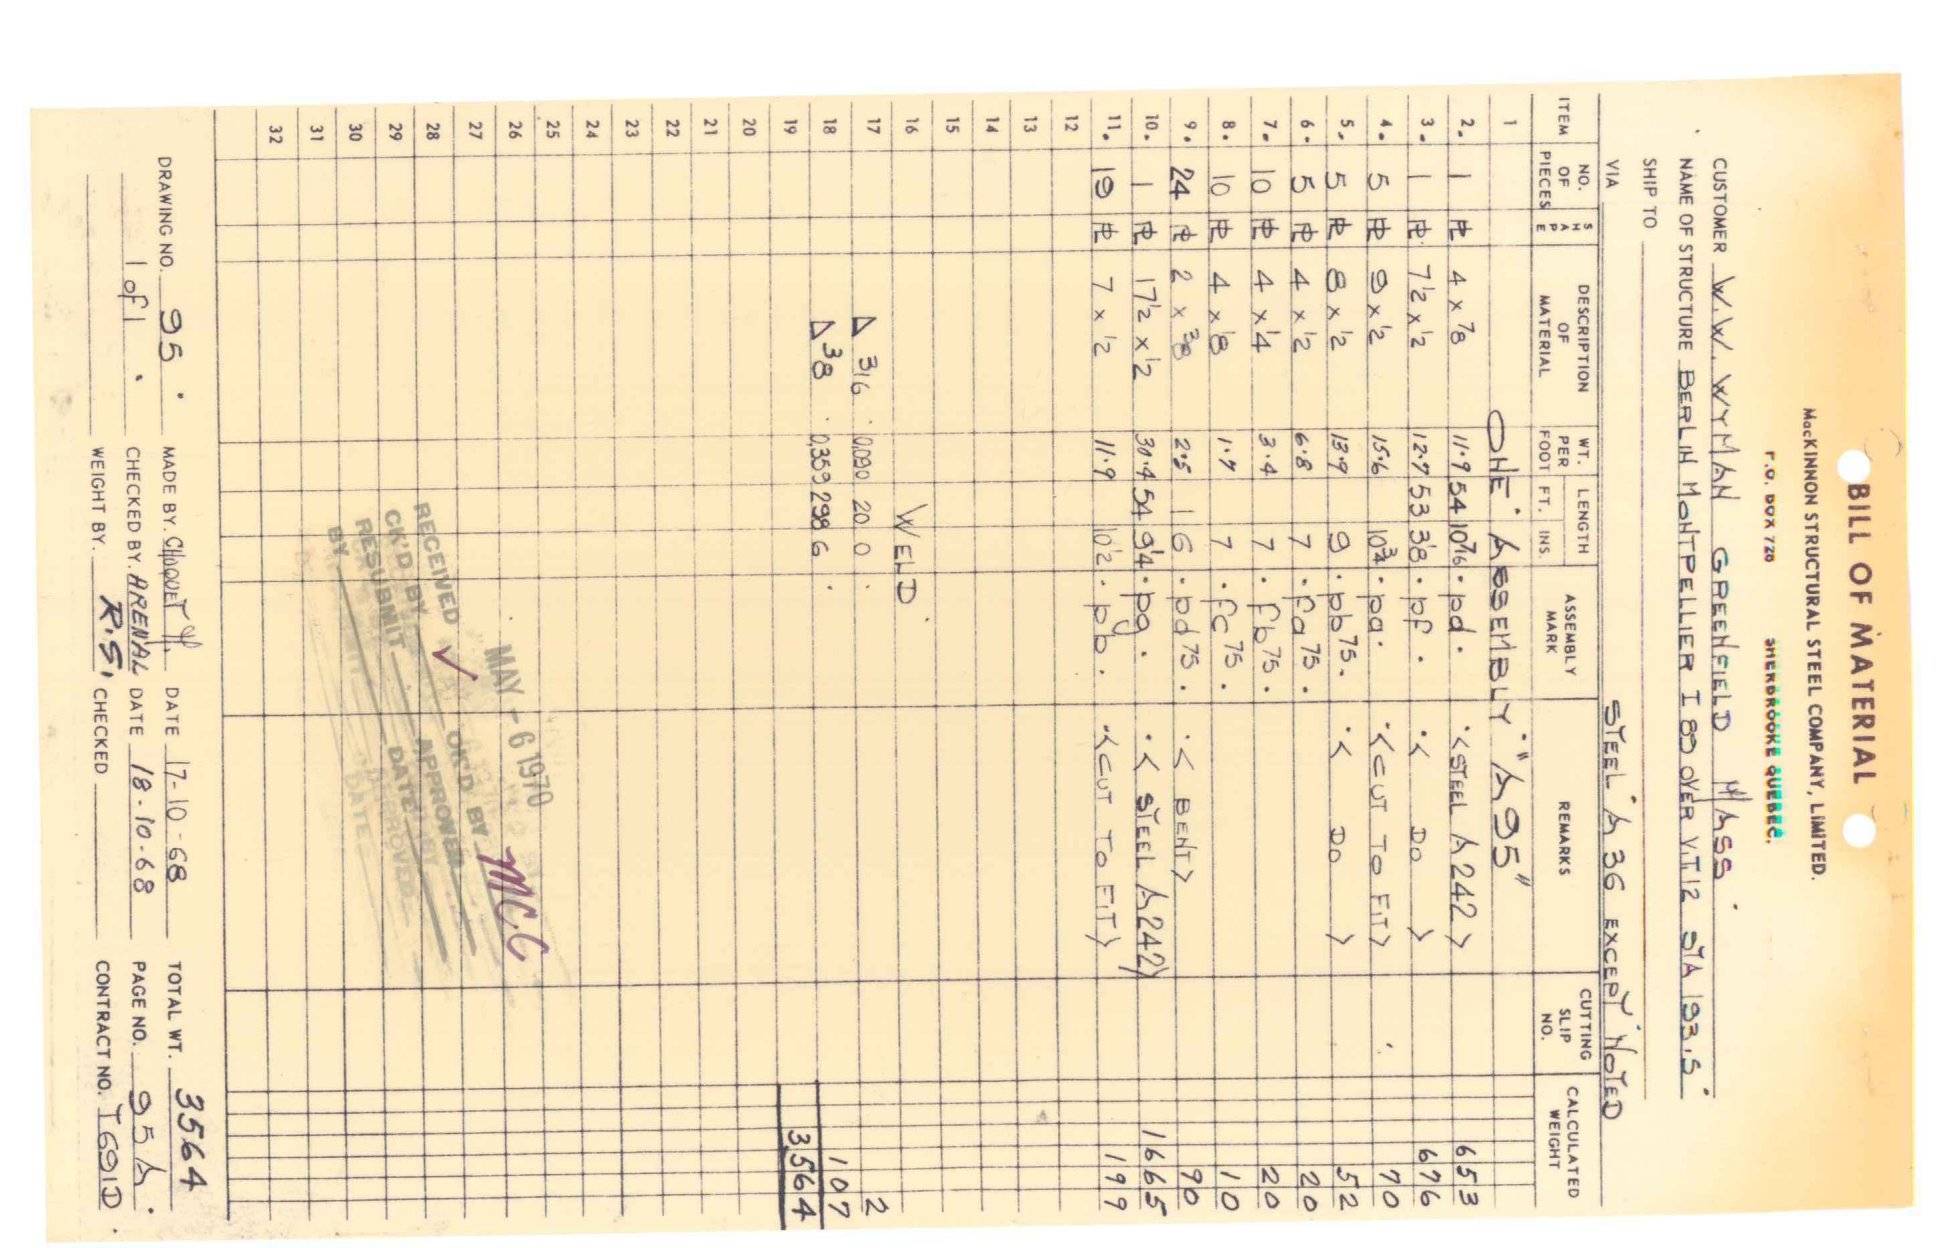 BILL OF MATERIAL
MacKINNON STRUCTURAL STEEL COMPANY, LIMITED.
P.O. BOX 720 SHERBROOKE QUEBEC.
CUSTOMER W.W. WYMAN GREENFIELD MASS.
NAME OF STRUCTURE BERLIN MONTPELLIER I 89 OVER V.T 12 STA 193.5
SHIP TO
VIA STEEL A 36 EXCEPT NOTED
ITEM NO. OF PIECES SHAPE DESCRIPTION OF MATERIAL WT. PER FOOT LENGTH FT. INS. ASSEMBLY MARK REMARKS CUTTING SLIP NO. CALCULATED WEIGHT
1 ONE ASSEMBLY "A95"
2. 1 PL 4 x 7/8 11.9 54 10 7/16 pd. <STEEL A242> 653
3. 1 PL 7 1/2 x 1/2 12.7 53 3/8 pf. < DO > 676
4. 5 PL 9 x 1/2 15.6 10 3/4 pa. <CUT TO FIT> 70
5. 5 PL 8 x 1/2 13.9 9 pb75. < DO > 52
6. 5 PL 4 x 1/2 6.8 7 fa75. 20
7. 10 PL 4 x 1/4 3.4 7 fb75. 20
8. 10 PL 4 x 1/8 1.7 7 fc75. 10
9. 24 PL 2 x 3/8 2.5 1 6 pd75. < BENT> 90
10. 1 PL 17 1/2 x 1/2 30.4 54 9 1/4 pg. < STEEL A242> 1665
11. 19 PL 7 x 1/2 11.9 10 1/2 pb. <CUT TO FIT> 199
12
13
14
15
16 WELD
17 Δ 3/16 0,090 20 0 2
18 Δ 3/8 0,359 298 6 107
19 3564
20
21
22
23
24
25
26
27
28
29
30
31
32
MAY - 6 1970
RECEIVED OK'D BY M.C.C
CK'D BY APPROVED
RESUBMIT DATE
BY
DRAWING NO. 95 MADE BY. CHOQUET DATE 17-10-68 TOTAL WT. 3564
1 of 1 CHECKED BY. ARENAL DATE 18-10-68 PAGE NO. 95A
WEIGHT BY. R.S. CHECKED CONTRACT NO. T691D